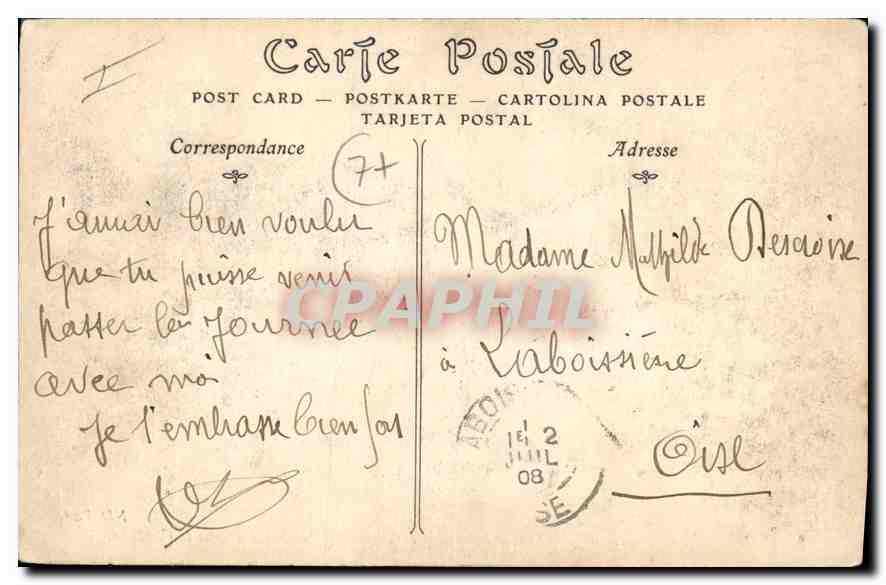 Carte Postale
POST CARD — POSTKARTE — CARTOLINA POSTALE
TARJETA POSTAL
Correspondance
Adresse
7+
J'aurai bien voulu
que tu puisse venir
passer la Journée
avec moi
Je t'embrasse bien fort
Madame Mathilde
à Laboissière
Oise
1E 2
JUIL
08
CPAPHIL